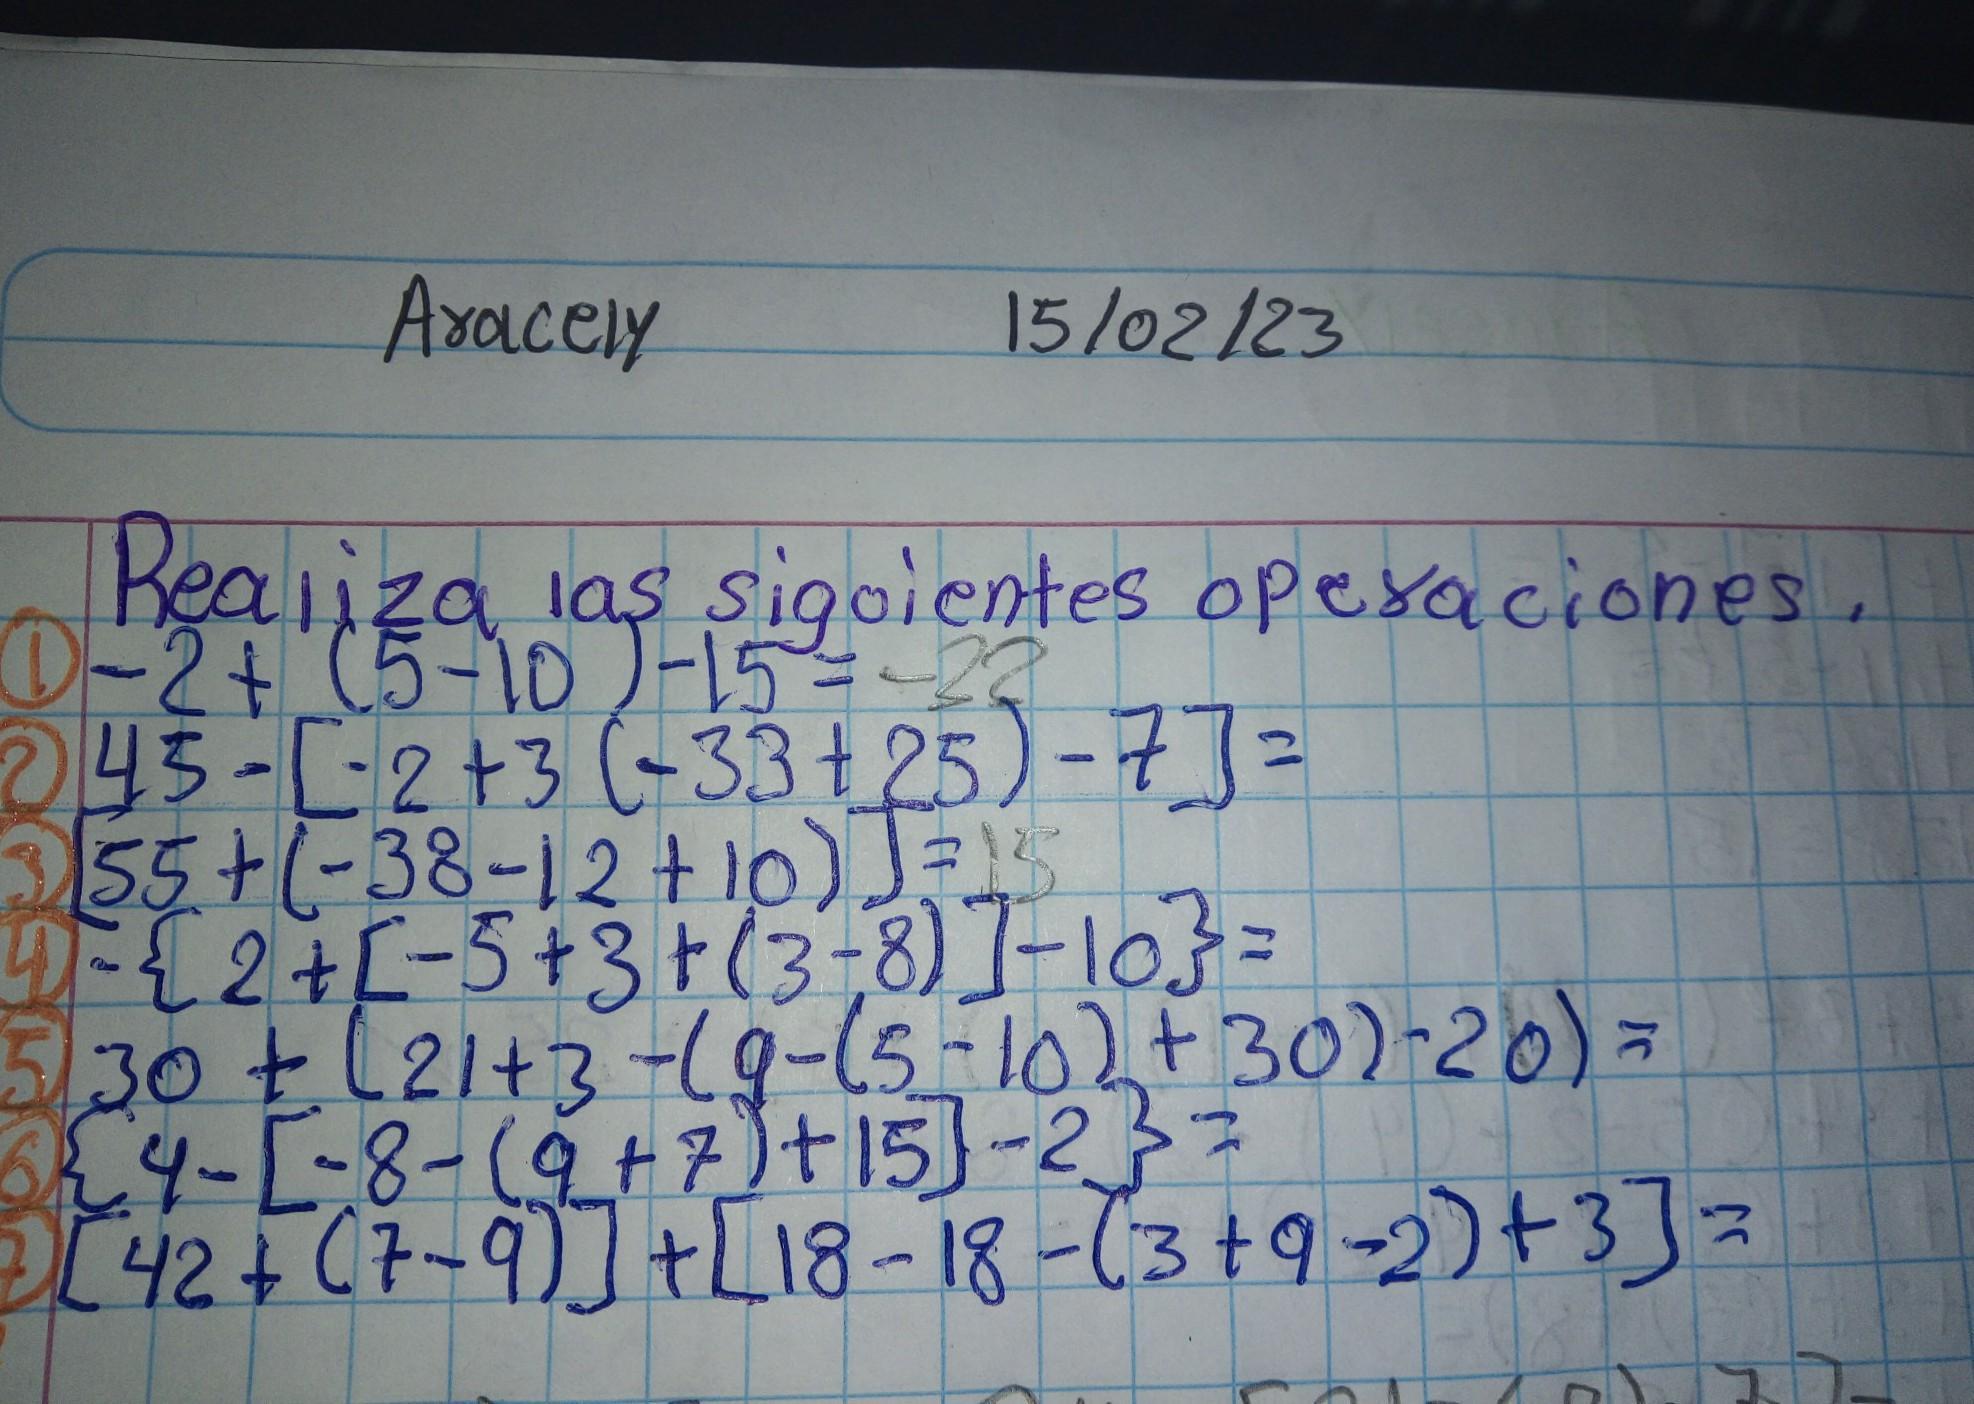 Aracely 15/02/23
Realiza las siguientes operaciones.
① -2 + (5-10) -15 = -22
② 45 - [-2 + 3 (-33 + 25) - 7] =
③ [55 + (-38 - 12 + 10)] = 15
④ -{2 + [-5 + 3 + (3-8)] - 10} =
⑤ 30 + (21 + 3 - (9 - (5 - 10) + 30) - 20) =
⑥ {4 - [-8 - (9 + 7) + 15] - 2} =
⑦ [42 + (7-9)] + [18 - 18 - (3 + 9 - 2) + 3] =